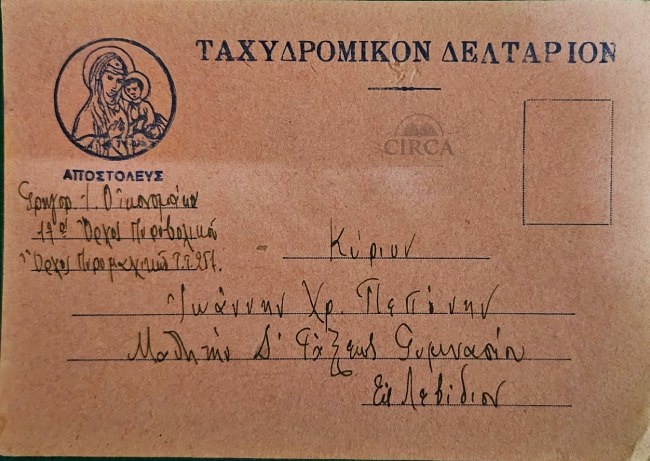 ΤΑΧΥΔΡΟΜΙΚΟΝ ΔΕΛΤΑΡΙΟΝ
CIRCA
ΑΠΟΣΤΟΛΕΥΣ
Γρηγορ. Ι. Οικονομάκο
17α Όρχος Πυροβολικού
Όρχος Πυρομαχικών Τ.Τ.
Κύριον
Ἰωάννην Χρ. Πεπόνην
Μαθητήν Δ' Τάξεως Γυμνασίου
Εις Λεβίδιον